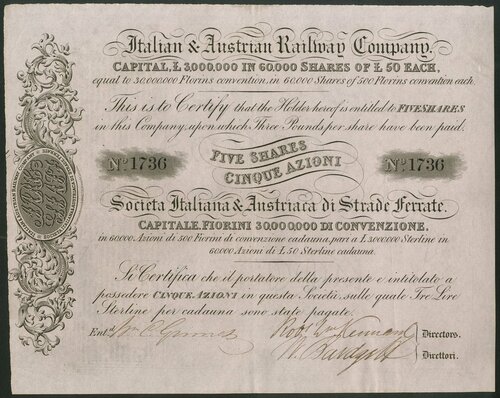 Italian & Austrian Railway Company.
CAPITAL, £3,000,000 IN 60,000 SHARES OF £50 EACH,
equal to 30,000,000 Florins convention, in 60,000 Shares of 500 Florins convention each.
This is to Certify that the Holder hereof is entitled to FIVE SHARES
in this Company, upon which Three Pounds per share have been paid.
No. 1736
FIVE SHARES
CINQUE AZIONI
No. 1736
Societa Italiana & Austriaca di Strade Ferrate.
CAPITALE, FIORINI 30,000,000 DI CONVENZIONE,
in 60,000 Azioni di 500 Fiorini di convenzione cadauna, pari a £3,000,000 Sterline in
60,000 Azioni di £50 Sterline cadauna.
Si Certifica che il portatore della presente e intitolato a
possedere CINQUE AZIONI in questa Societa, sulle quale Tre Lire
Sterline per cadauna sono state pagate.
Entd.
Directors.
Direttori.